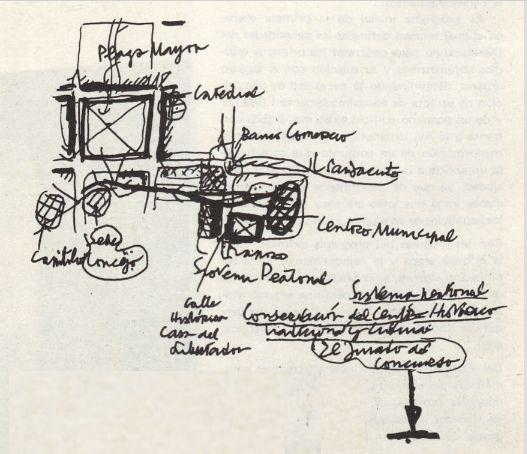 Plaza Mayor
Catedral
Banco Comercio
Viaducto
Centro Municipal
Capitolio
Sede
Concejo
Sistema Peatonal
Calle
Histórica
Casa del
Libertador
Sistema peatonal
Conservación del Centro Histórico
El Jurado de
Concurso